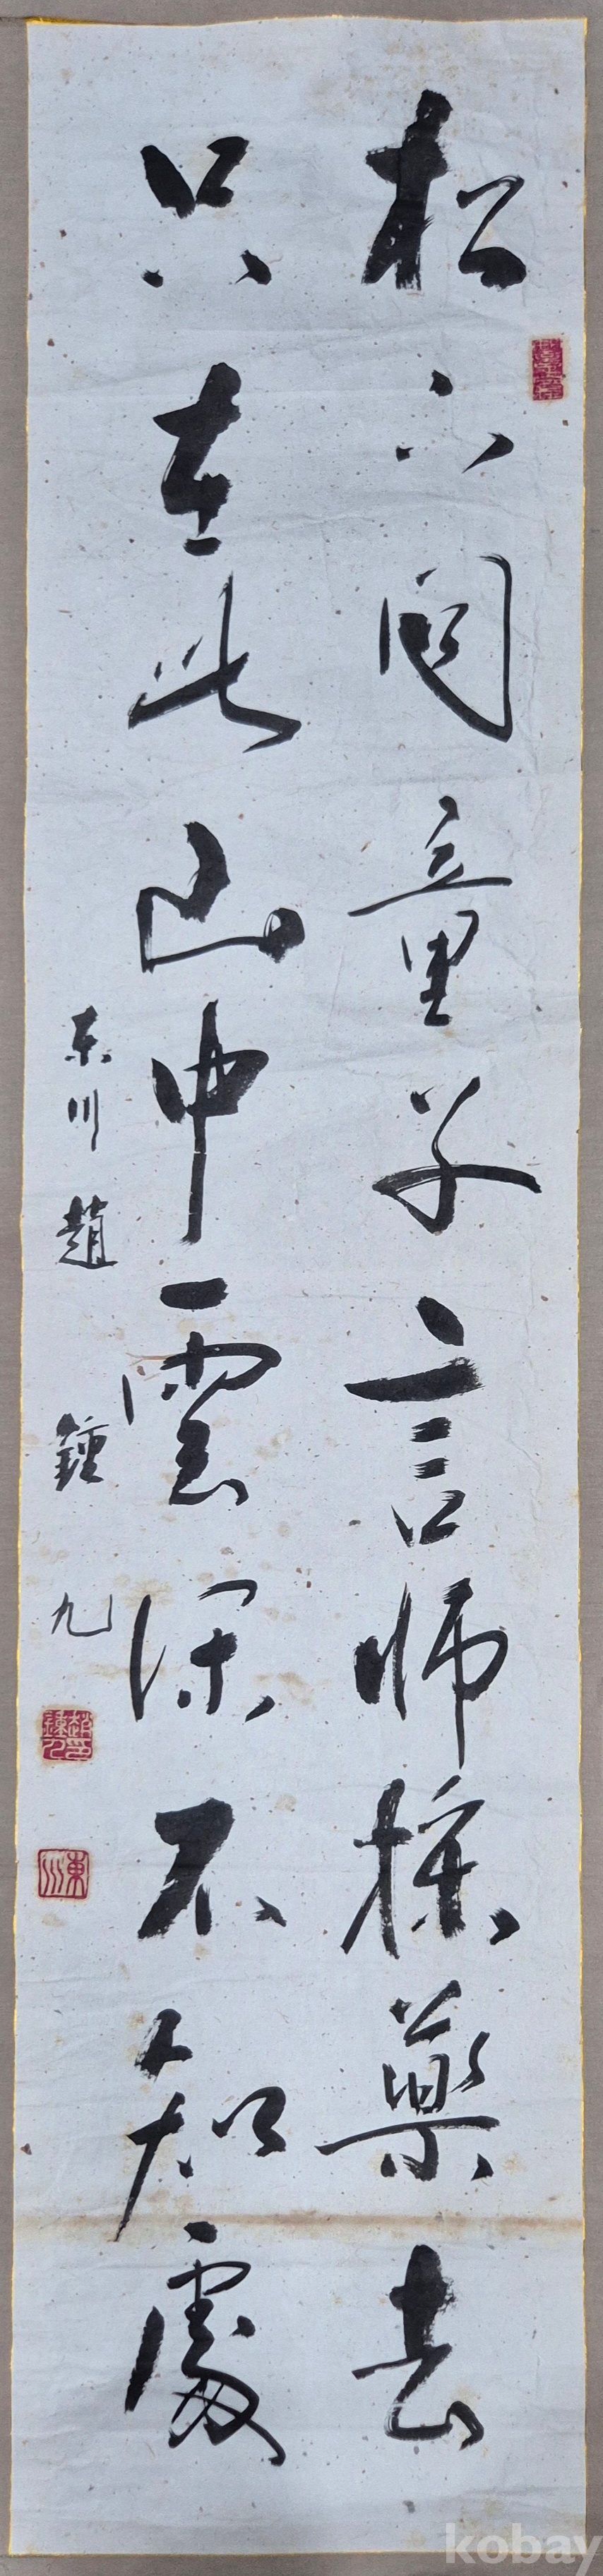 松下問童子言師採藥去
只在此山中雲深不知處
东川趙鍾九
趙鍾九印
東川
kobay